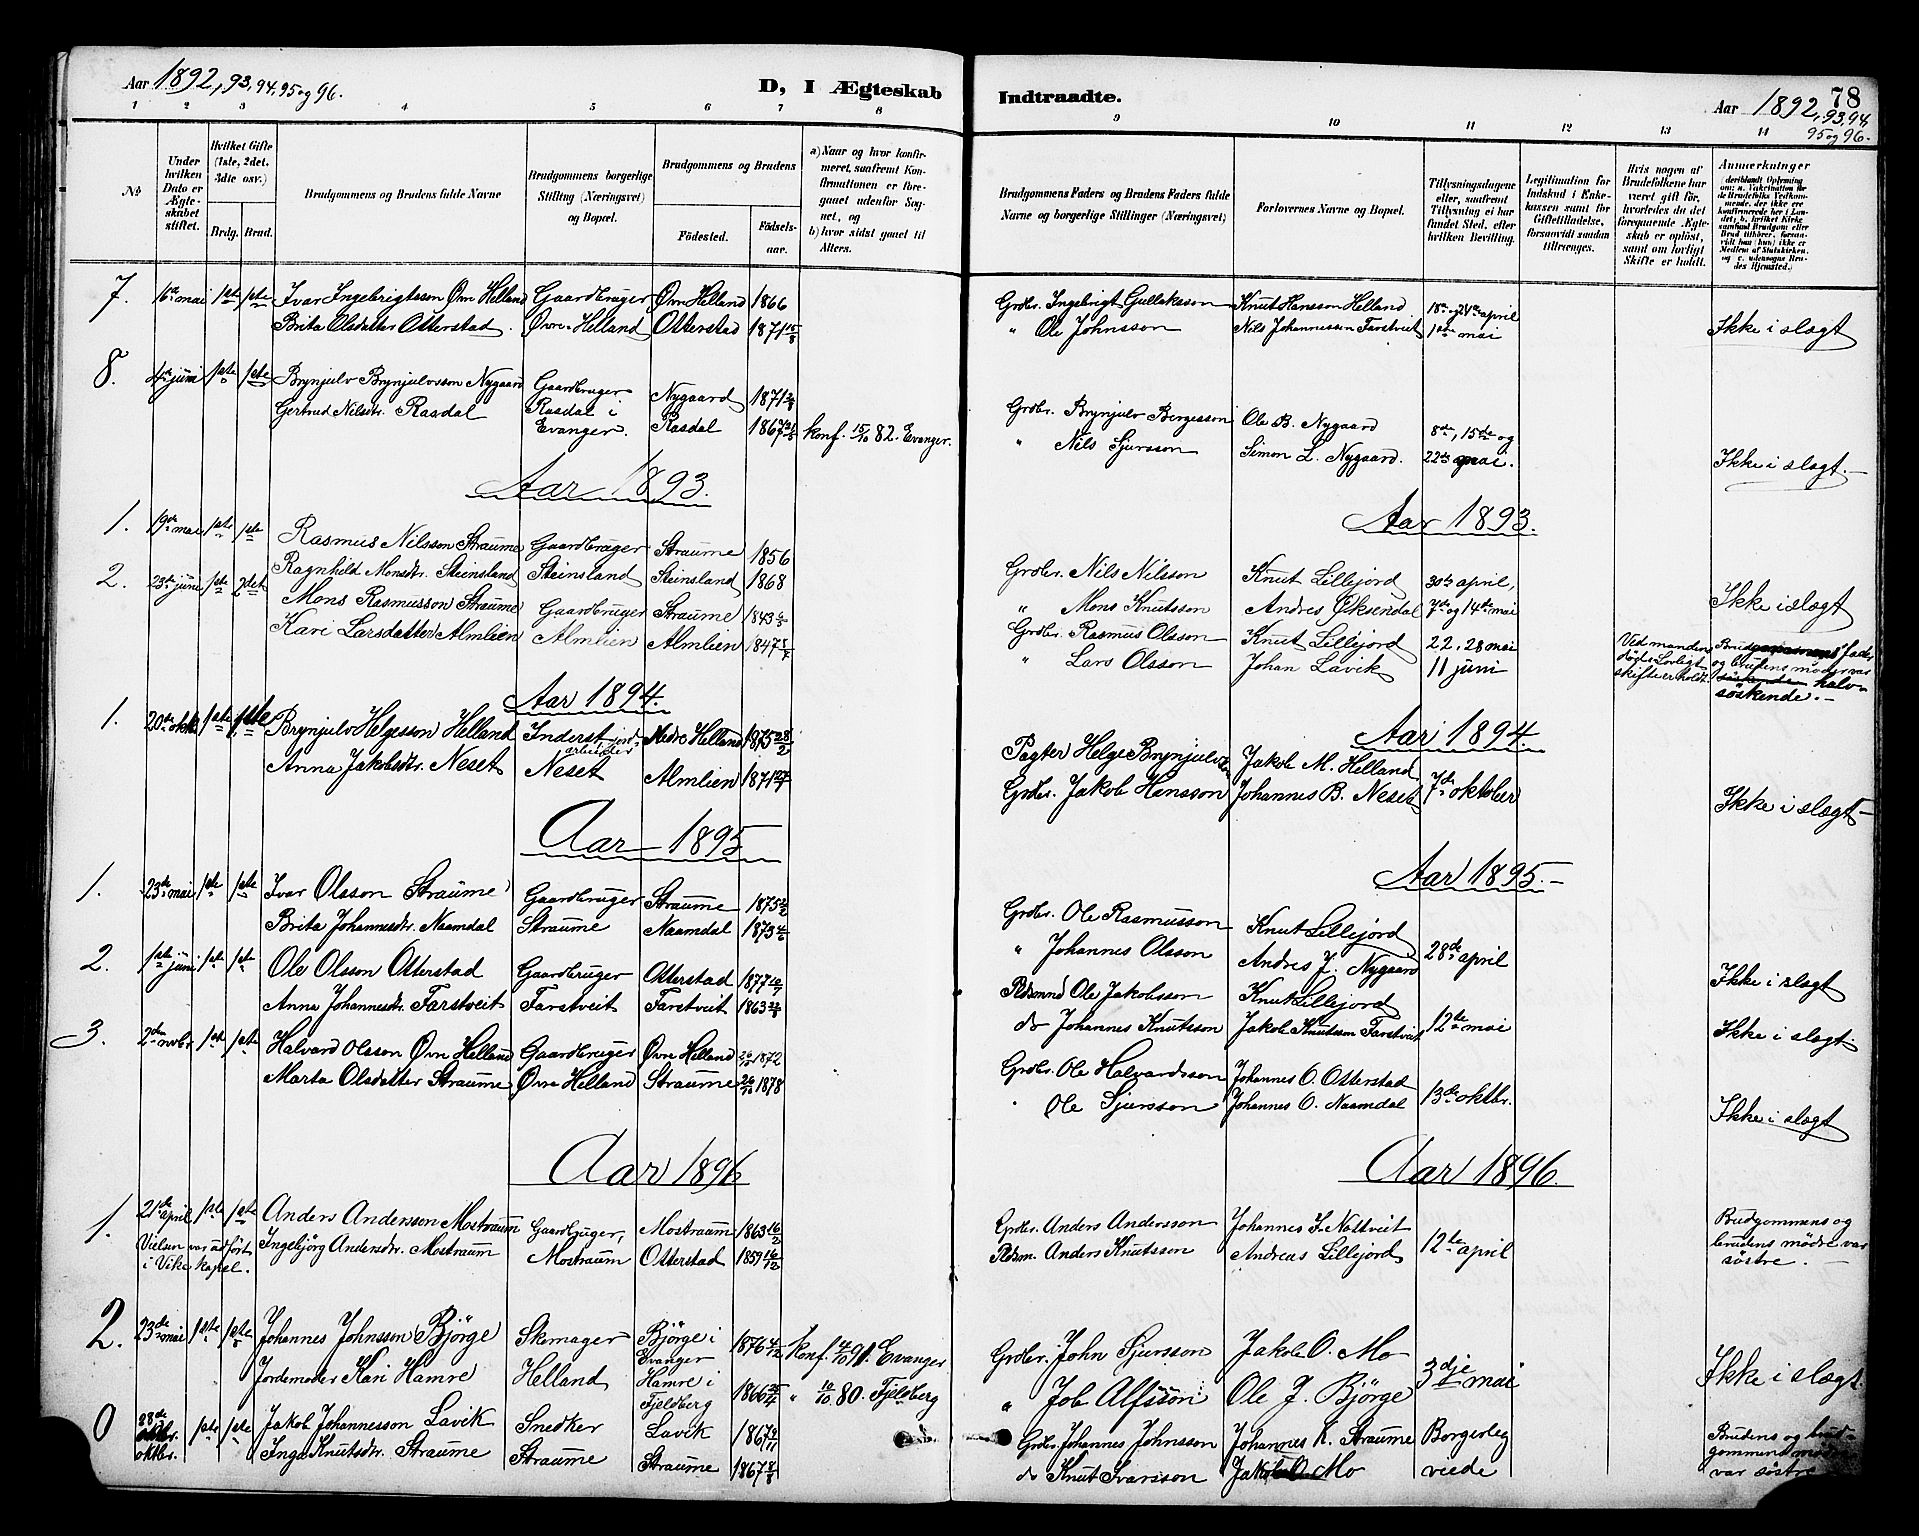 Aar 1892, 93, 94, 95 og 96.
D, I Ægteskab
Indtraadte.
Aar 1892, 93, 94,
95 og 96.
78
1 2 3 4 5 6 7 8 9 10 11 12 13 14
№
Under hvilken Dato er Ægteskabet stiftet.
Hvilket Gifte (1ste, 2det, 3die osv.)
Brdg. Brud.
Brudgommens og Brudens fulde Navne
Brudgommens borgerlige Stilling (Næringsvei) og Bopæl.
Brudgommens og Brudens
Fødested.
Fødselsaar.
a) Naar og hvor konfirmeret, saafremt Konfirmationen er foregaaet udenfor Sognet, og
b) hvor sidst gaaet til Alters.
Brudgommens Faders og Brudens Faders fulde Navne og borgerlige Stillinger (Næringsvei)
Forlovernes Navne og Bopæl.
Tillysningsdagene eller, saafremt Tillysning ei har fundet Sted, efter hvilken Bevilling.
Legitimation for Indskud i Enkekassen samt for Giftetilladelse, forsaavidt saadan tiltrænges.
Hvis nogen af Brudefolkene har været gift før, hvorledes da det foregaaende Ægteskab er opløst, samt om lovligt Skifte er holdt.
Anmærkninger
7. 16de mai 1ste 1ste Ivar Ingebrigtsson Øvre Helland Gaardbruger Øvre Helland 1866
Brita Olsdatter Otterstad. Øvre Helland Otterstad 1871
Grdbr. Ingebrigt Gullaksson Knut Hansson Helland 18de og 24de april
" Ole Johnsson Nils Johannesson Farstveit 1ste mai Ikke i slægt
8. 4de juni 1ste 1ste Brynjulv Brynjulvsson Nygaard Gaardbruger Nygaard 1871
Gertrud Nilsdtr. Rasdal Rasdal i Evanger. Rasdal 1867 konf. 15/10 82. Evanger.
Grdbr. Brynjulv Bergesson Ole B. Nygaard 8de, 15de og
" Nils Sjursson Simon L. Nygaard. 22de mai. Ikke i slægt.
Aar 1893.
Aar 1893.
1. 19de mai 1ste 1ste Rasmus Nilsson Straume Gaardbruger Straume 1856
Ragnhild Monsdtr. Steinsland Steinsland Steinsland 1868
Grdbr. Nils Nilsson Knut Lillejord 30te april,
" Mons Knutsson Andres Øksendal 7de og 14de mai Ikke i slægt
2. 23de juni 1ste 2det Mons Rasmusson Straume Gaardbruger Straume 1843
Kari Larsdatter Almlien Almlien Almlien 1847
Grdbr. Rasmus Olsson Knut Lillejord 22, 28 mai
" Lars Olsson Johan Lavik 11 juni
Ved mandens død. Lovligt skifte er holdt.
fader og brudens moder var halvsøskende.
Aar 1894.
Aar 1894.
1. 20de oktbr 1ste 1ste Brynjulv Helgesson Helland Inderst jordarbeider Nedre Helland 1875 28/2
Anna Jakobsdtr. Neset Neset Almlien 1871
Pagter Helge Brynjulvsen Jakob M. Helland
Grdbr. Jakob Hansson Johannes B. Neset 7de oktober Ikke i slægt
Aar 1895
Aar 1895.
1. 23de mai 1ste 1ste Ivar Olsson Straume Gaardbruger Straume 1875
Brita Johannesdtr. Naamdal Straume Naamdal 1873
Grdbr. Ole Rasmusson Knut Lillejord
" Johannes Olsson Andres J. Nygaard 28de april Ikke i slægt
2. 1ste juni 1ste 1ste Ole Olsson Otterstad Gaardbruger Otterstad 1877
Anna Johannesdtr. Farstveit Farstveit Farstveit 1863
Pldsmnd Ole Jakobsson Knut Lillejord
do Johannes Knutsson Jakob Knutsson Farstveit 12te mai Ikke i slægt.
3. 2den novbr. 1ste 1ste Halvard Olsson Øvre Helland Gaardbruger Øvre Helland 1872
Marta Olsdatter Straume Øvre Helland Straume 1878
Grdbr. Ole Halvardsson Johannes O. Otterstad
" Ole Sjursson Johannes O. Naamdal 13de oktbr. Ikke i slægt
Aar 1896
Aar 1896.
1. 21de april 1ste 1ste Anders Andersson Mostraum Gaardbruger, Mostraum 1863 16/2
Vielsen var udført i Vike kapel. Ingebjørg Andersdtr. Mostraum Mostraum Otterstad 1859 16/12
Grdbr. Anders Andersson Johannes I. Nattveit
Pldsm. Anders Knutsson Andreas Lillejord 12te april
Brudgommens og brudens mødre var søstre.
2. 23de mai 1ste 1ste Johannes Johnsson Bjørge Skomager Bjørge i Evanger 1876 4/12 Konf. 4/10 91. Evanger
Jordemoder Kari Hamre Helland Hamre i Fjeldberg 1866 " 10/10 80. Fjeldberg
Grdbr. John Sjursson Jakob O. Mo
" Job Alfsson Ole J. Bjørge 3dje mai Ikke i slægt.
0 28de oktbr. 1ste 1ste Jakob Johannesson Lavik Snedker Lavik 1867 9/11
Inga Knutsdtr. Straume Straume Straume 1867
Grdbr. Johannes Johnsson Johannes K. Straume Borgerlig
do Knut Ivarsson Jakob O. Mo viede
Brudens og brudgommens mødre var søstre